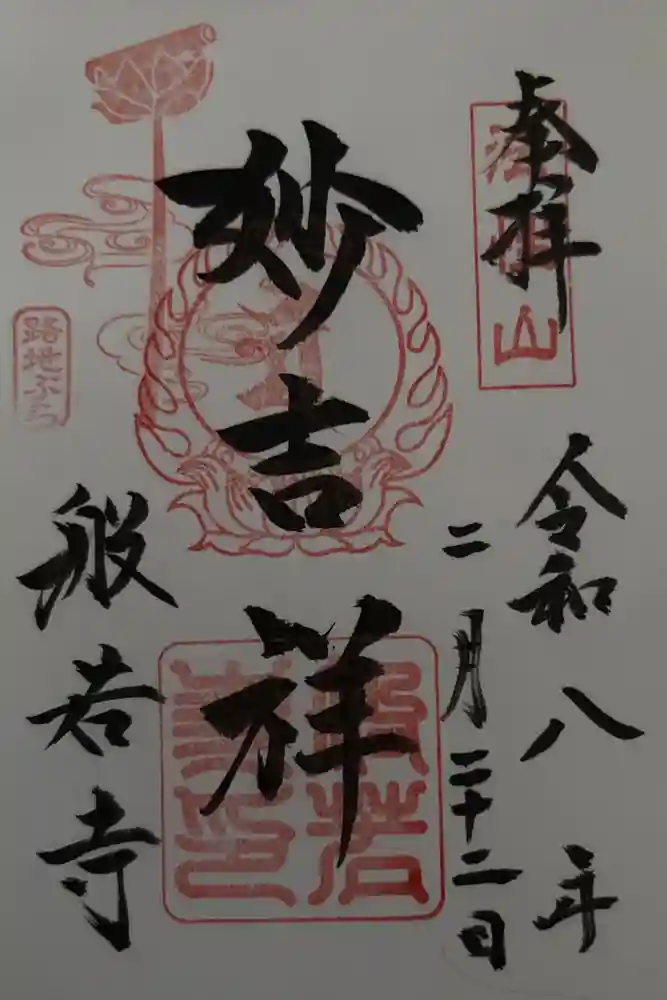 奉拝
令和八年
二月二十二日
妙吉祥
般若寺
路地ぶら